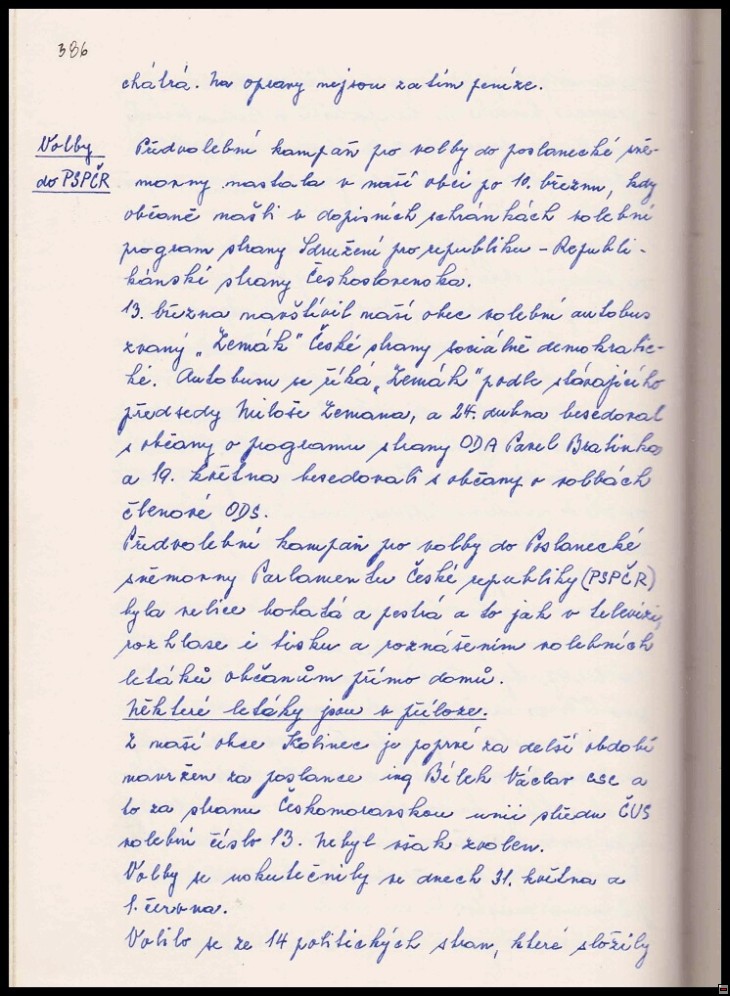 386
chátrá. Na opravy nejsou zatím peníze.
Volby
do PSPČR
Předvolební kampaň pro volby do poslanecké sně-
movny nastala v naší obci po 10. březnu, kdy
občané našli v dopisních schránkách volební
program strany Sdružení pro republiku - Republi-
kánské strany Československa.
13. března navštívil naší obec volební autobus
zvaný „Zemák" České strany sociálně demokratic-
ké. Autobusu se říká „Zemák" podle stávajícího
předsedy Miloše Zemana, a 24. dubna besedoval
s občany o programu strany ODA Pavel Bratinka
a 19. května besedovali s občany o volbách
členové ODS.
Předvolební kampaň pro volby do Poslanecké
sněmovny Parlamentu České republiky (PSPČR)
byla velice bohatá a pestrá a to jak v televizi,
rozhlase i tisku a roznášením volebních
letáků občanům přímo domů.
Některé letáky jsou v příloze.
Z naší obce Kolinec je poprvé za delší období
navržen za poslance ing Bílek Václav csc a
to za stranu Českomoravskou unii středu ČUS
volební číslo 13. Nebyl však zvolen.
Volby se uskutečnily ve dnech 31. května a
1. června.
Volilo se ze 14 politických stran, které složily